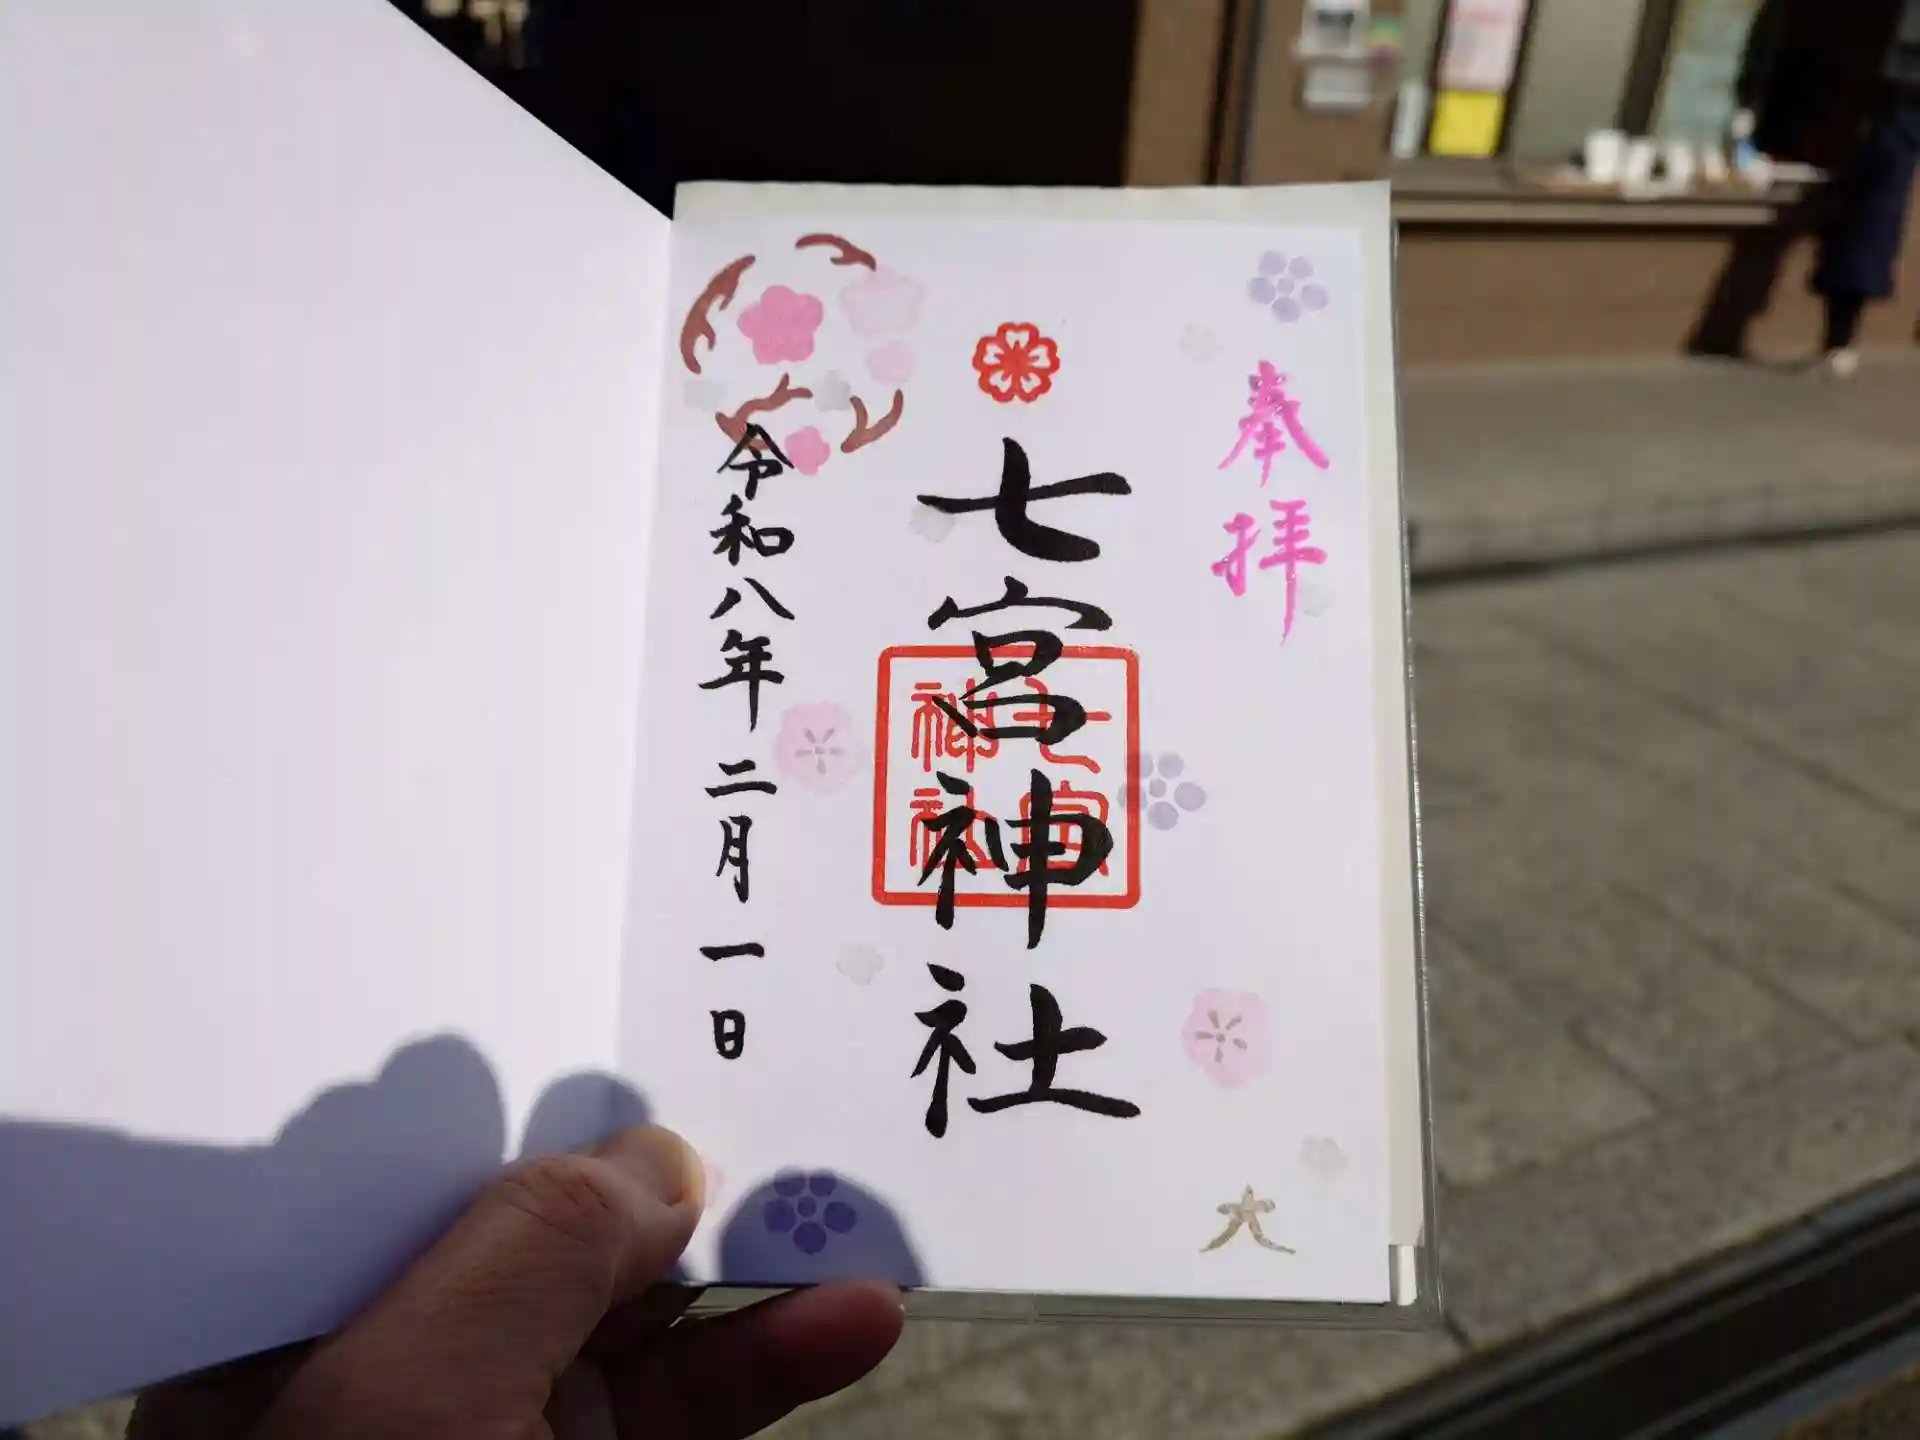 奉拝
七宮神社
七宮
神社
令和八年二月一日
大